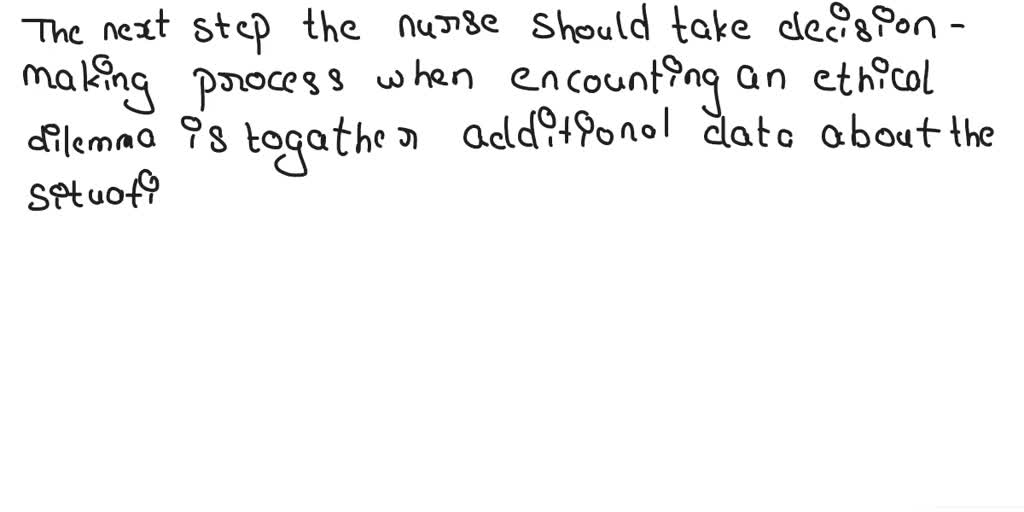 The next step the nurse should take decision -
making process when encounting an ethical
dilemma is togather additional data about the
situati